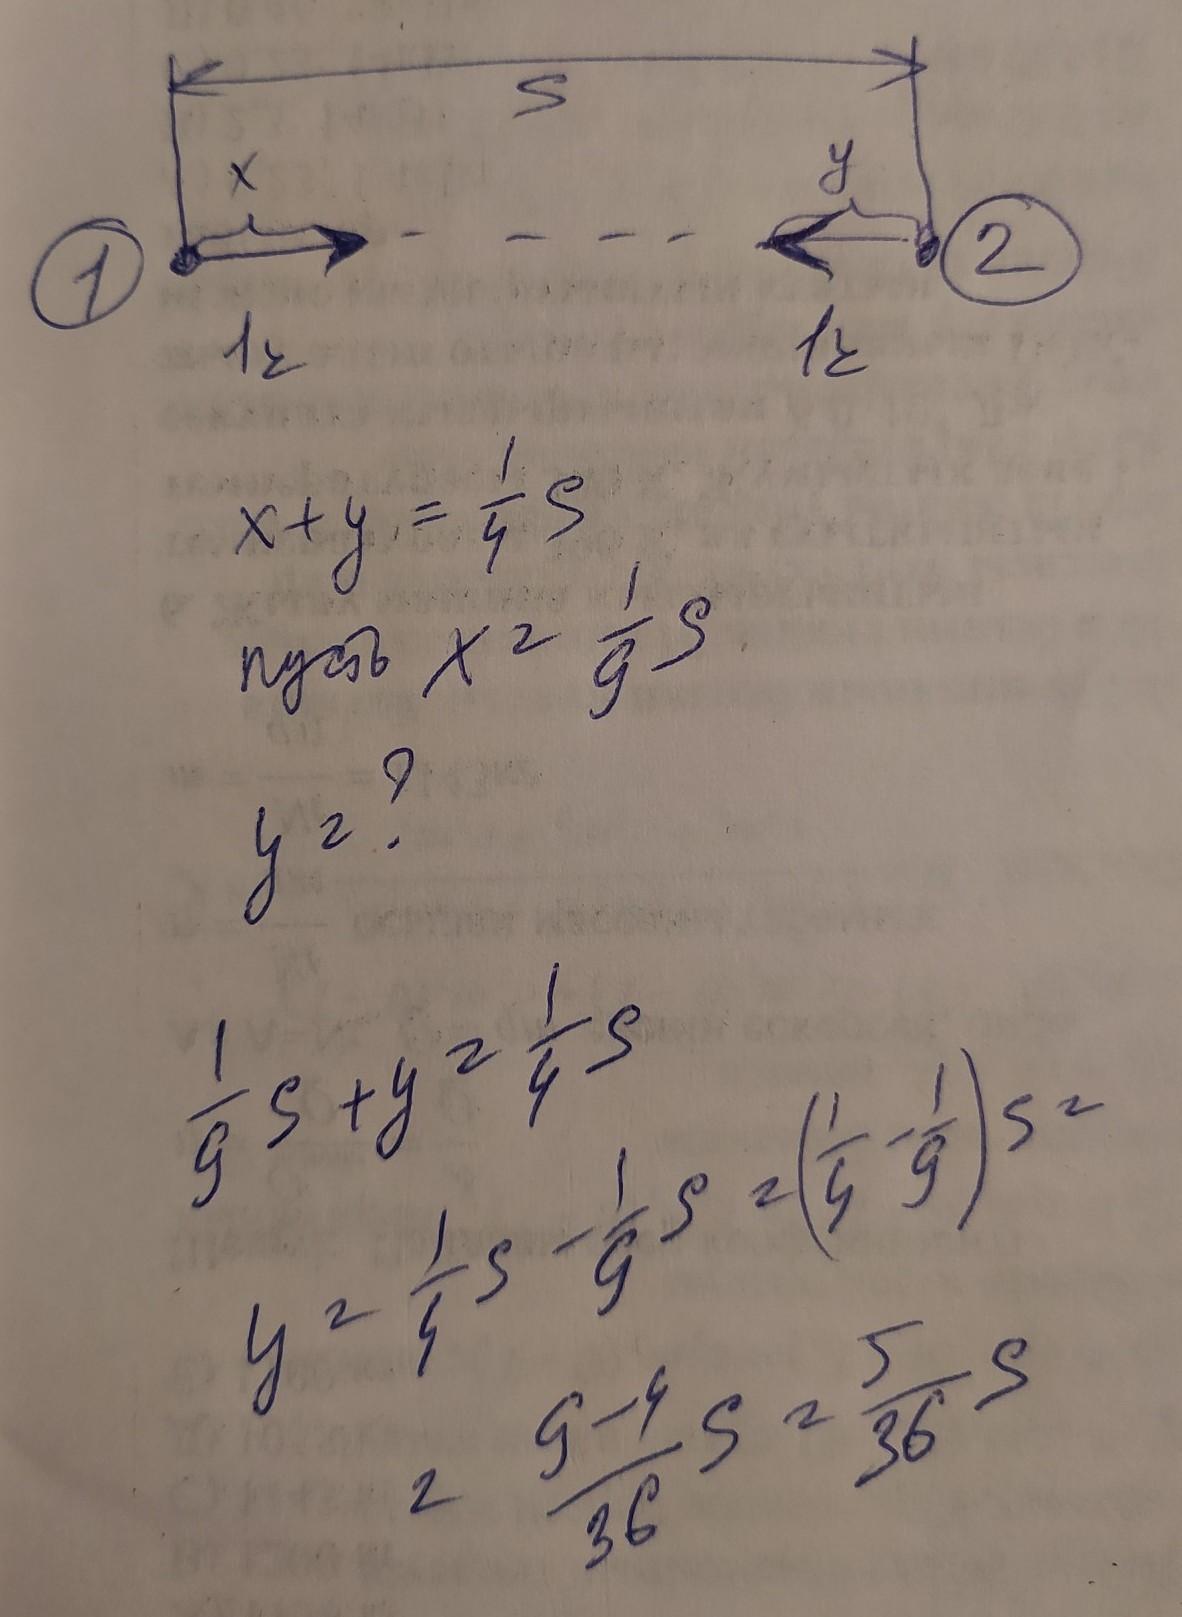 S
x y
1 2
1ч 1ч
x+y = 1/4 S
пусть x = 1/9 S
y = ?
1/9 S + y = 1/4 S
y = 1/4 S - 1/9 S = (1/4 - 1/9) S =
= 9-4/36 S = 5/36 S